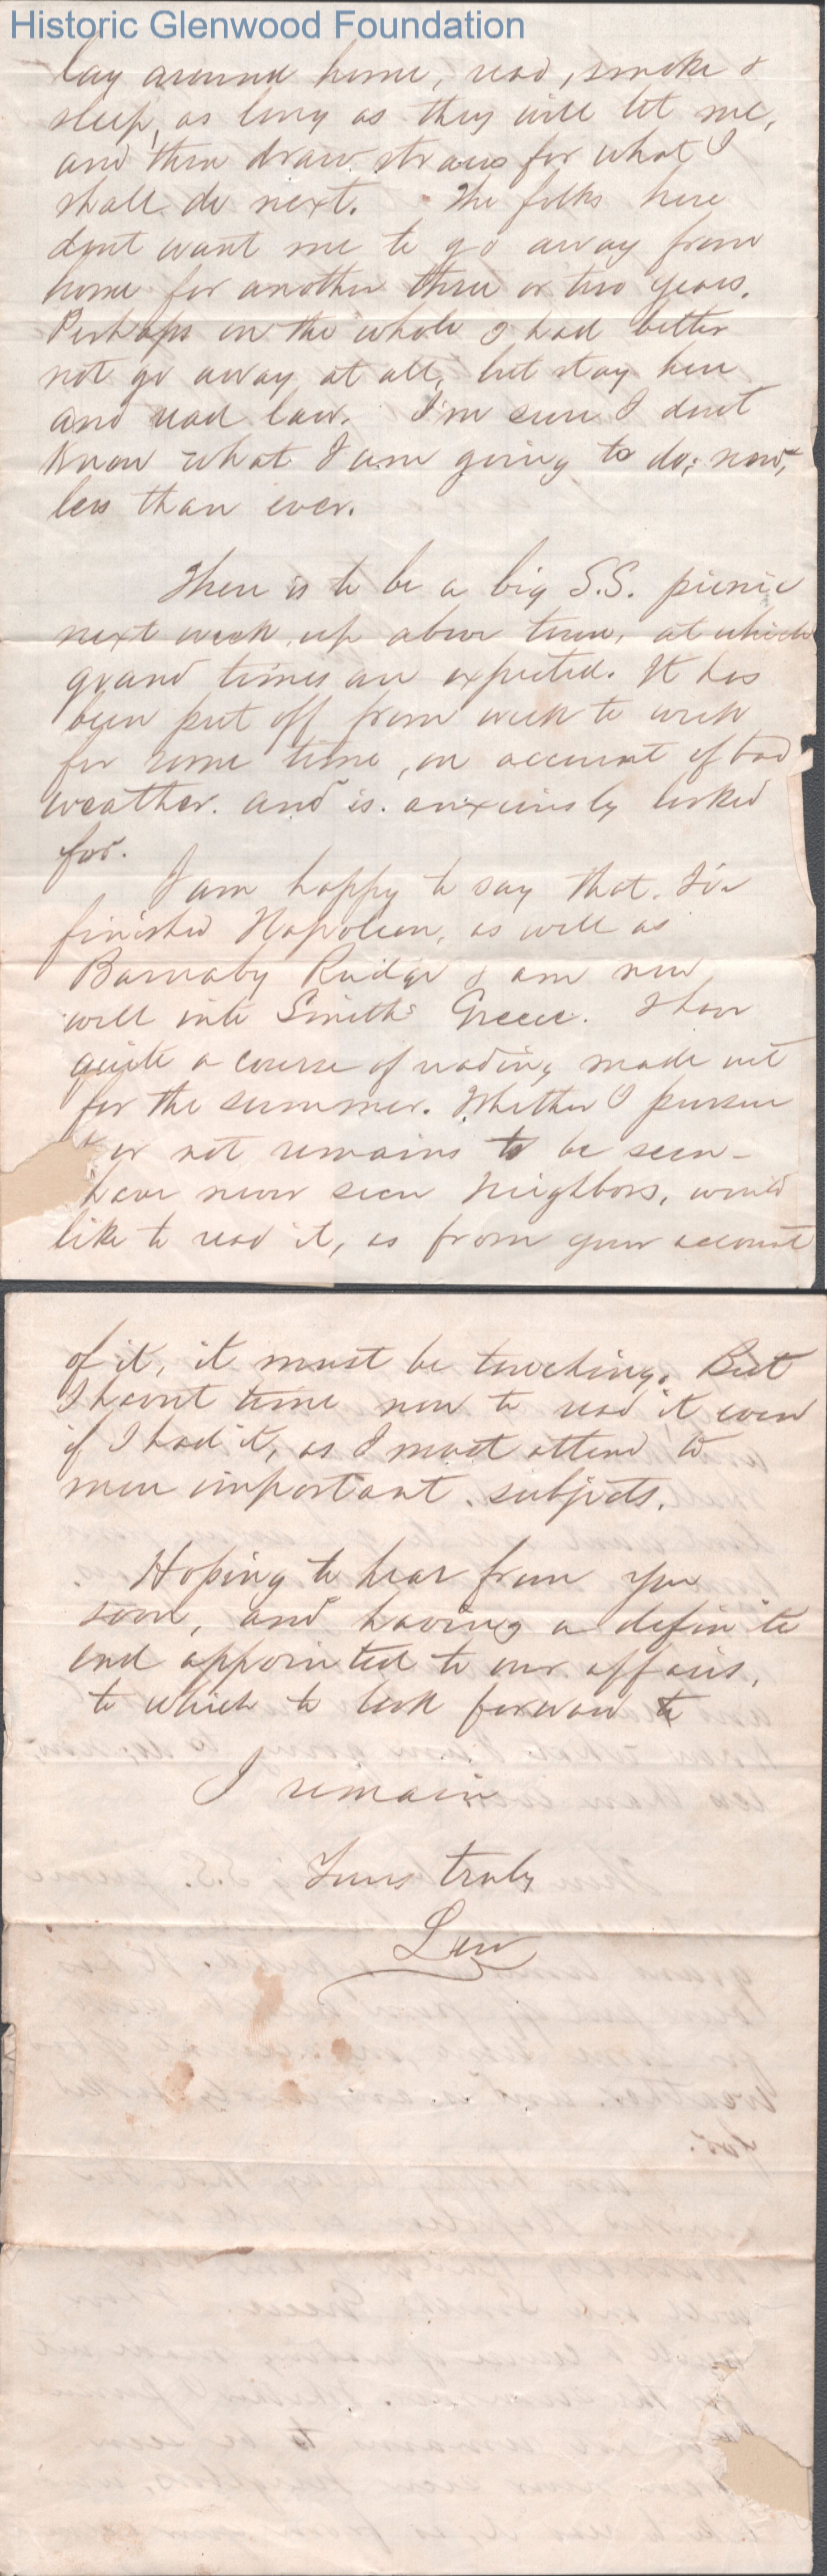 Historic Glenwood Foundation
lay around home, read, smoke &
sleep, as long as they will let me,
and then draw straws for what I
shall do next. The folks here
dont want me to go away from
home for another three or two years.
Perhaps on the whole I had better
not go away at all, but stay here
and read law. I'm sure I dont
know what I am going to do; now,
less than ever.
There is to be a big S.S. picnic
next week, up above town, at which
grand times are expected. It has
been put off from week to week
for some time, on account of bad
weather. and is anxiously looked
for.
I am happy to say that I've
finished Napoleon, as well as
Barnaby Rudge & am now
well into Smith's Greece. I have
quite a course of reading made out
for the summer. Whether I pursue
or not remains to be seen -
have never seen Neighbors, would
like to read it, as from your account
of it, it must be touching. But
I havnt time now to read it even
if I had it, as I must attend to
more important subjects.
Hoping to hear from you
soon, and having a definite
end appointed to our affairs,
to which to look forward to
I remain
Yours truly
Lew